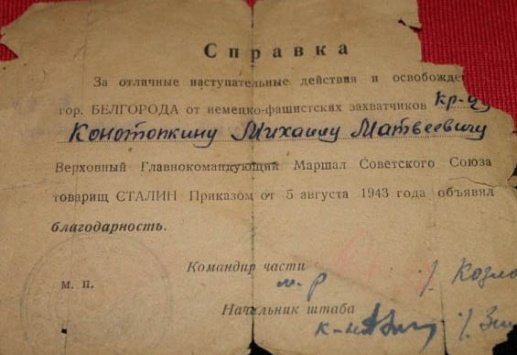 Справка
За отличные наступательные действия и освобожде
гор. БЕЛГОРОДА от немецко-фашистских захватчиков кр-цу
Конотопкину Михаилу Матвеевичу
Верховный Главнокомандующий Маршал Советского Союза
товарищ СТАЛИН Приказом от 5 августа 1943 года объявил
благодарность.
Командир части
м. п. м-р /Козло
Начальник штаба
к-н